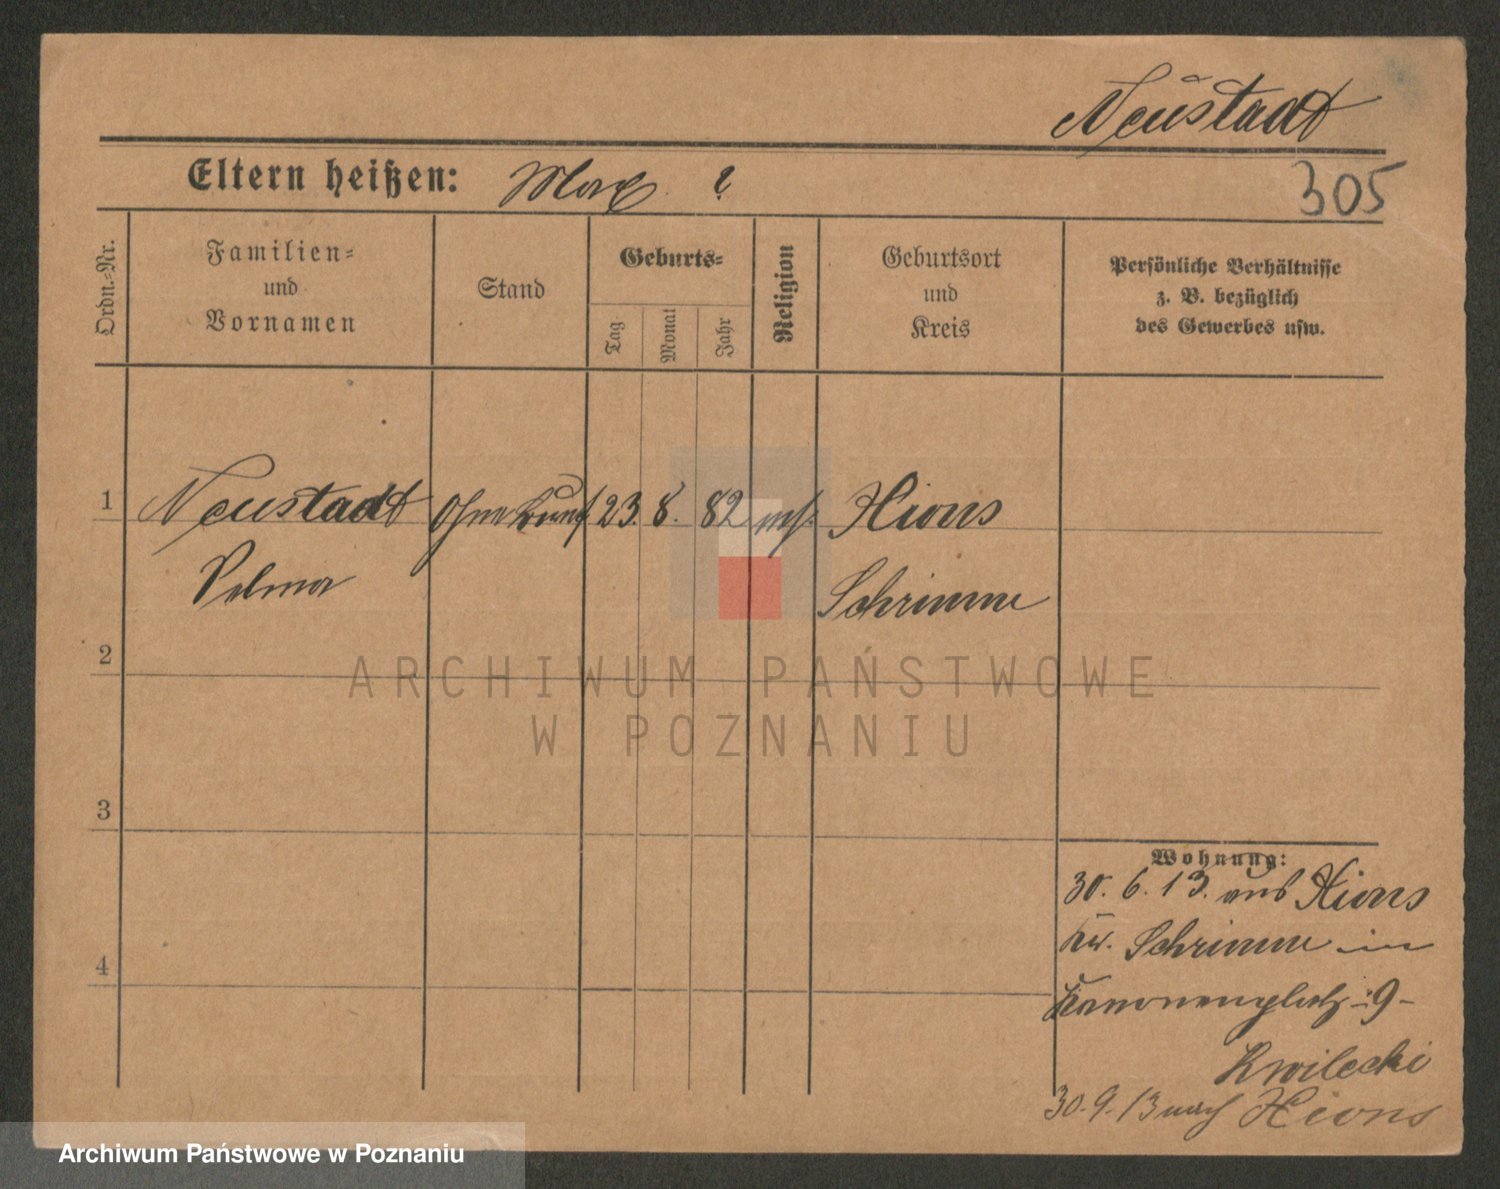 Neustadt
Eltern heißen: Max ?
305
Ordn.-Nr.
Familien-
und
Vornamen
Stand
Geburts-
Tag
Monat
Jahr
Religion
Geburtsort
und
Kreis
Persönliche Verhältnisse
z. B. bezüglich
des Gewerbes usw.
1 Neustadt ohne Beruf 23. 8. 82 Xions
Schrimm
2
3
4
Wohnung:
30. 6. 13. aus Xions
Kr. Schrimm in
Kanonenplatz 9
Kwilecki
30. 9. 13 nach Xions
ARCHIWUM PAŃSTWOWE
W POZNANIU
Archiwum Państwowe w Poznaniu